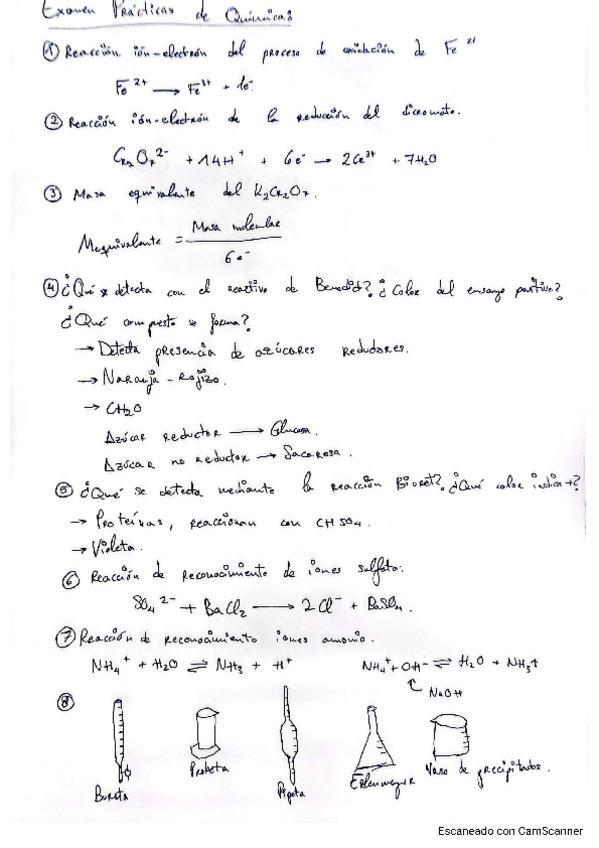 Examen Prácticas de Química:
① Reacción ión-electrón del proceso de oxidación de Fe 2+
Fe 2+ → Fe 3+ + 1e-
② Reacción ión-electrón de la reducción del dicromato.
Cr2O7 2- + 14H+ + 6e- → 2Cr3+ + 7H2O
③ Masa equivalente del K2Cr2O7.
Mequivalente = Masa molecular
6e-
④ ¿Qué se detecta con el reactivo de Benedict? ¿Color del ensayo positivo?
¿Qué compuesto se forma?
→ Detecta presencia de azúcares reductores.
→ Naranja - Rojizo.
→ CH2O
Azúcar reductor → Glucosa.
Azúcar no reductor → Sacarosa.
⑤ ¿Qué se detecta mediante la reacción Biuret? ¿Qué color indica +?
→ Proteínas, reaccionan con CHSO4.
→ Violeta.
⑥ Reacción de reconocimiento de iones sulfato.
SO4 2- + BaCl2 → 2Cl- + BaSO4.
⑦ Reacción de reconocimiento iones amonio.
NH4+ + H2O ⇌ NH3 + H+ NH4+ + OH- ⇌ H2O + NH3↑
NaOH
⑧
Bureta Probeta Pipeta Erlenmeyer Vaso de precipitados.
Escaneado con CamScanner